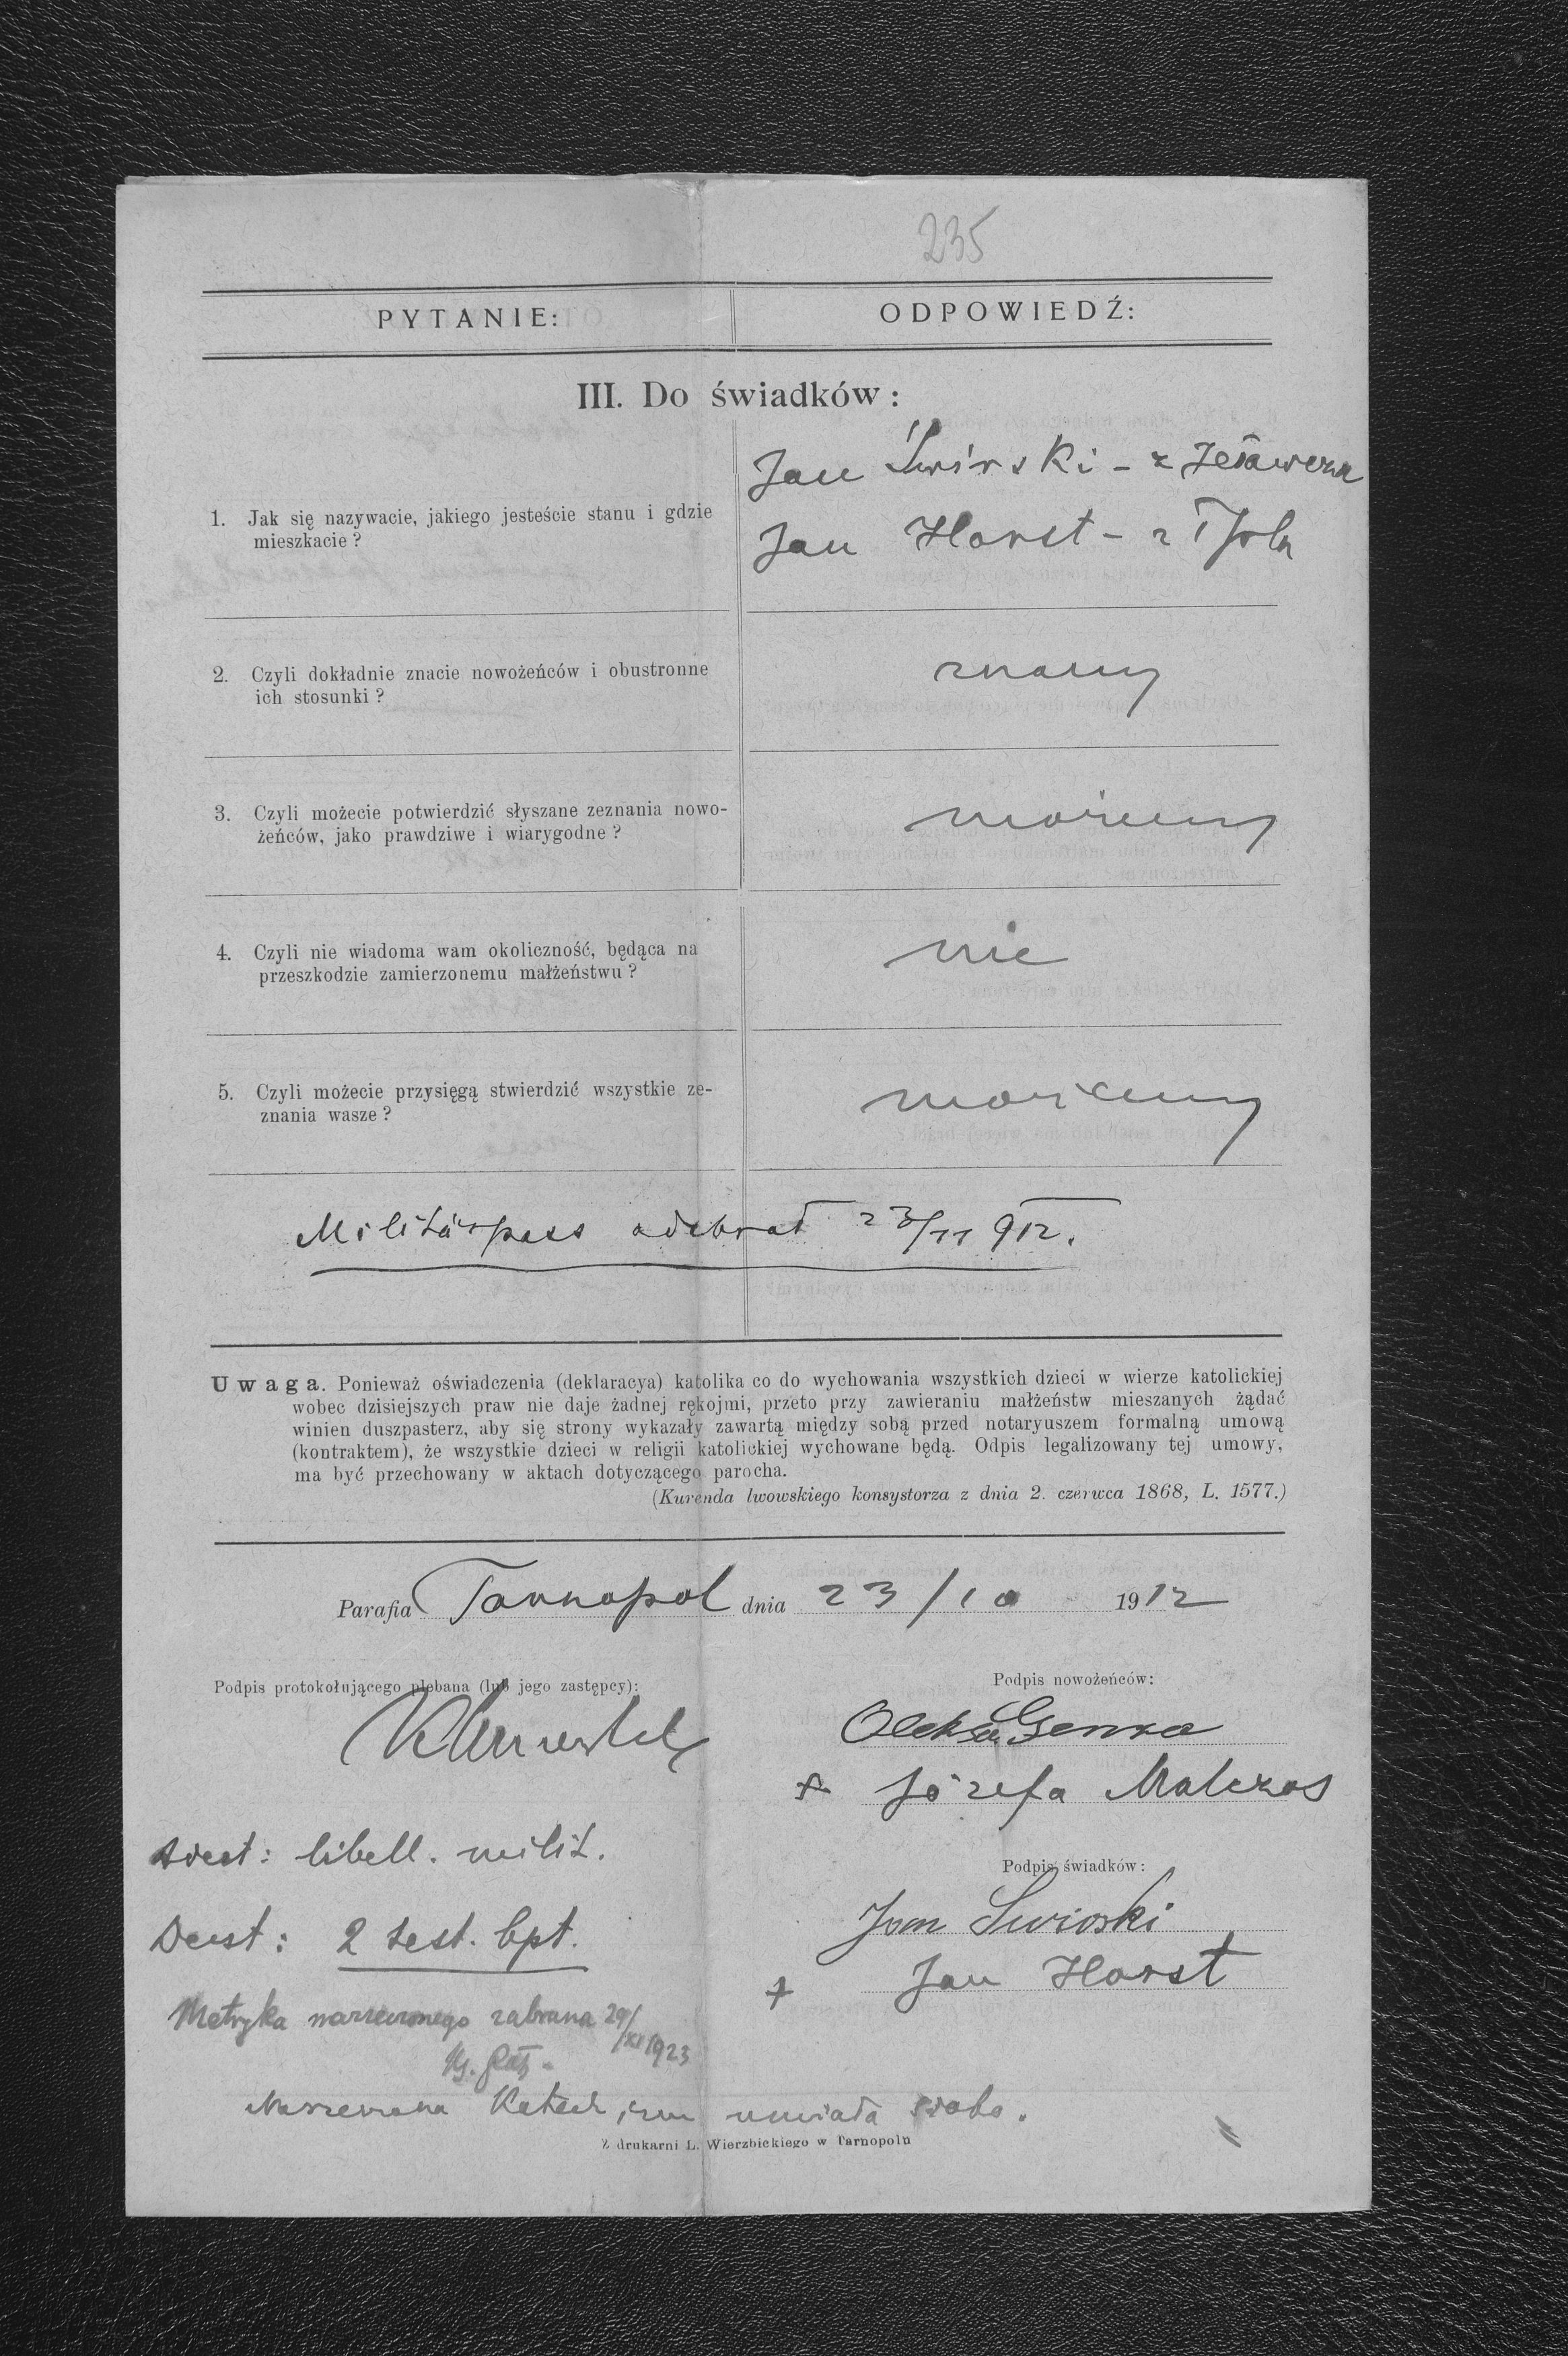 235
PYTANIE:
ODPOWIEDŹ:
III. Do świadków:
1. Jak się nazywacie, jakiego jesteście stanu i gdzie
mieszkacie?
Jan Świrski - z
Jan Horst - z
2. Czyli dokładnie znacie nowożeńców i obustronne
ich stosunki?
znamy
3. Czyli możecie potwierdzić słyszane zeznania nowo-
żeńców, jako prawdziwe i wiarygodne?
możemy
4. Czyli nie wiadoma wam okoliczność, będąca na
przeszkodzie zamierzonemu małżeństwu?
nie
5. Czyli możecie przysięgą stwierdzić wszystkie ze-
znania wasze?
możemy
Militärpass odebrał 23/11 912.
Uwaga. Ponieważ oświadczenia (deklaracya) katolika co do wychowania wszystkich dzieci w wierze katolickiej
wobec dzisiejszych praw nie daje żadnej rękojmi, przeto przy zawieraniu małżeństw mieszanych żądać
winien duszpasterz, aby się strony wykazały zawartą między sobą przed notaryuszem formalną umową
(kontraktem), że wszystkie dzieci w religii katolickiej wychowane będą. Odpis legalizowany tej umowy,
ma być przechowany w aktach dotyczącego parocha.
(Kurenda lwowskiego konsystorza z dnia 2. czerwca 1868, L. 1577.)
Parafia Tarnopol dnia 23/10 1912
Podpis protokołującego plebana (lub jego zastępcy):
Podpis nowożeńców:
Oleksa Genza
+ Józefa Malczos
Adest: libell. milit.
Podpis świadków:
Jan Swirski
Deest: 2 test. bpt.
+ Jan Horst
Metryka narzeczonego zabrana 29/XI 1923
Narzeczona Katechizm umiała słabo.
Z drukarni L. Wierzbickiego w Tarnopolu